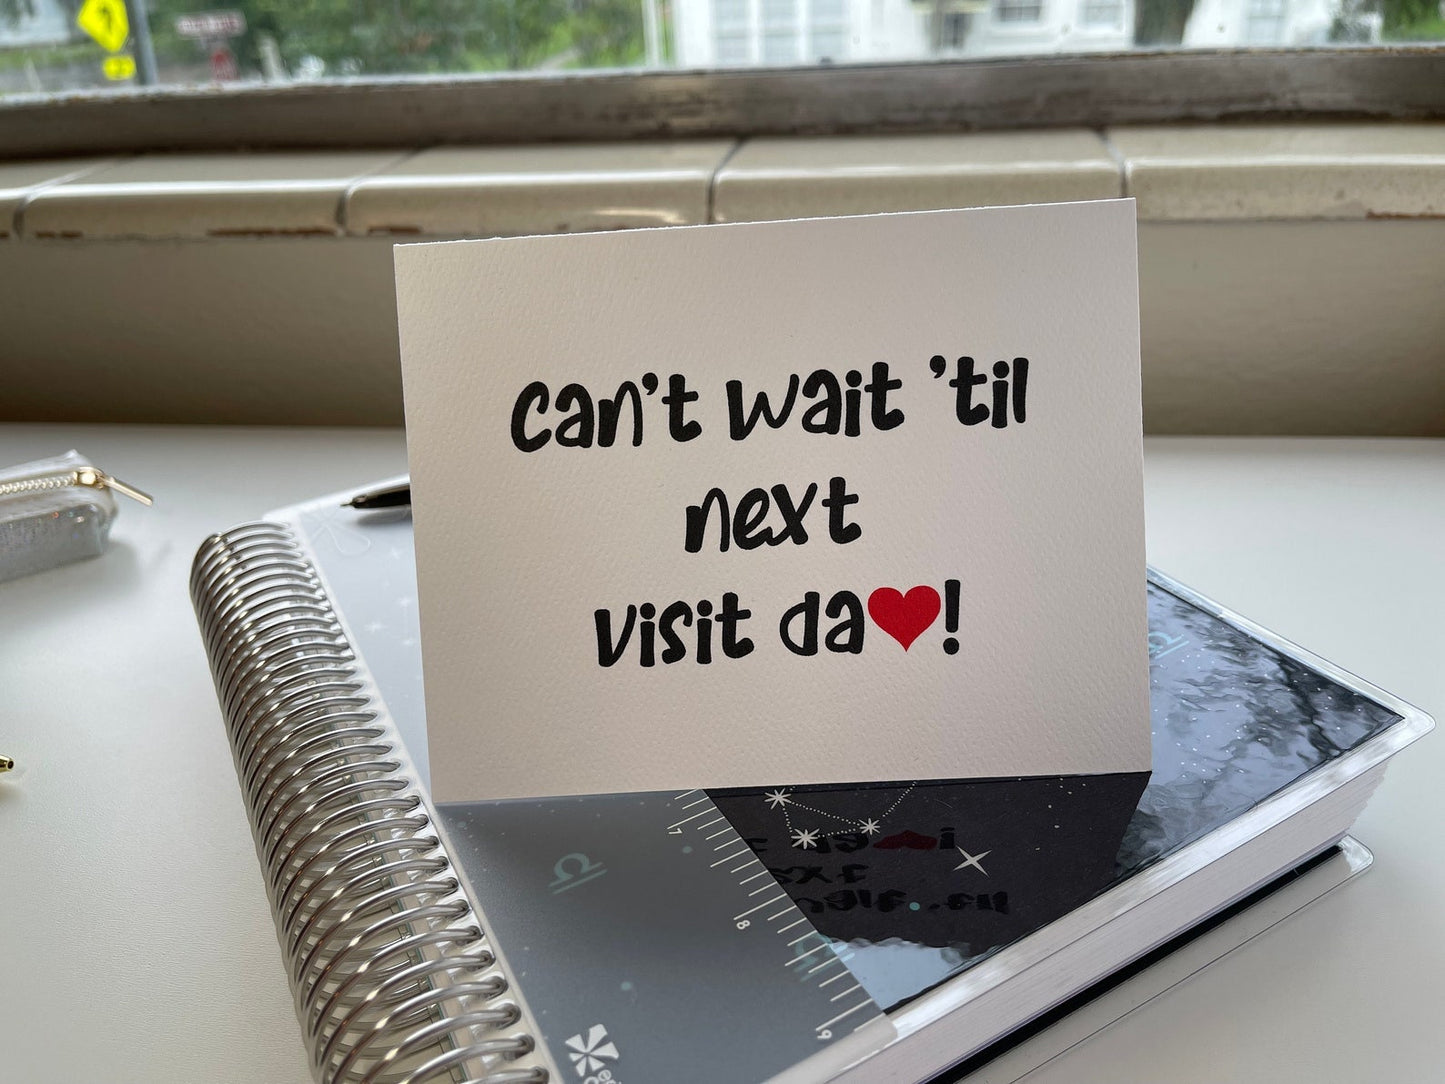 Can't wait 'til
next
visit da❤!
7
8
9